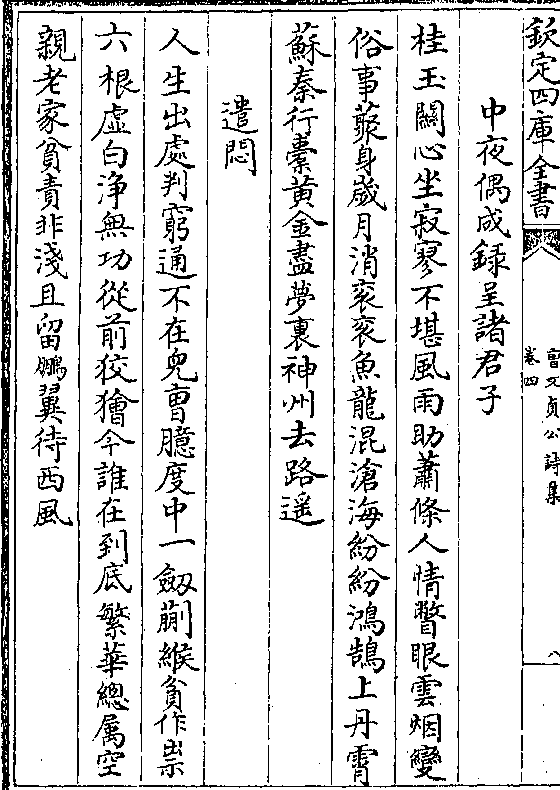 欽定四庫全書
曹文貞公詩集
卷四
八
中夜偶成録呈諸君子
桂玉關心坐寂寥不堪風雨助蕭條人情瞥眼雲烟變
俗事藂身歲月消衮衮魚龍混滄海紛紛鴻鵠上丹霄
蘇秦行橐黄金盡夢裏神州去路遥
遣悶
人生出處判窮通不在兒曹臆度中一劔蒯緱貧作祟
六根虚白浄無功從前狡獪今誰在到底繁華總属空
親老家貧責非淺且留鵬翼待西風